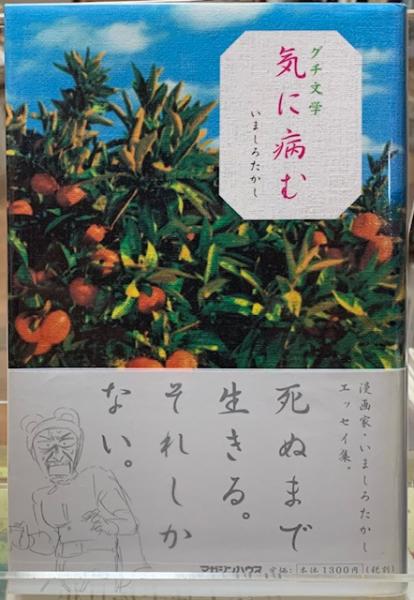 グチ文学
気に病む
いましろたかし
漫画家・いましろたかし
エッセイ集。
死ぬまで
生きる。
それしか
ない。
マガジンハウス 定価:本体1300円(税別)